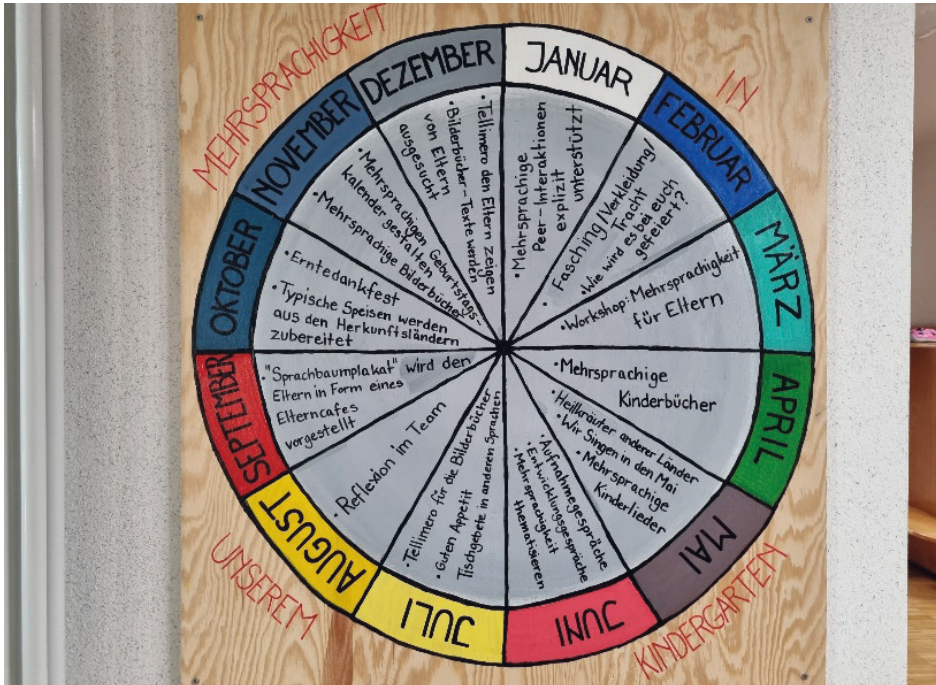 MEHRSPRACHIGKEIT
IN
UNSEREM
KINDERGARTEN
JANUAR
• Mehrsprachige
Peer-Interaktionen
explizit
unterstützt
FEBRUAR
• Fasching/Verkleidung/
Tracht
• Wie wird es bei euch
gefeiert?
MÄRZ
• Workshop: Mehrsprachigkeit
für Eltern
APRIL
• Mehrsprachige
Kinderbücher
MAI
• Heilkräuter anderer Länder
• Wir Singen in den Mai
• Mehrsprachige
Kinderlieder
JUNI
• Aufnahmegespräche
• Entwicklungsgespräche
• Mehrsprachigkeit
thematisieren
JULI
• Tellimero für die Bilderbücher
• Guten Appetit
Tischgebete in anderen Sprachen
AUGUST
• Reflexion im Team
SEPTEMBER
• "Sprachbaumplakat" wird den
Eltern in Form eines
Elterncafes
vorgestellt
OKTOBER
• Erntedankfest
• Typische Speisen werden
aus den Herkunftsländern
zubereitet
NOVEMBER
• Mehrsprachigen Geburtstags-
kalender gestalten
• Mehrsprachige Bilderbücher
DEZEMBER
• Tellimero den Eltern zeigen
• Bilderbücher-Texte werden
von Eltern
ausgesucht